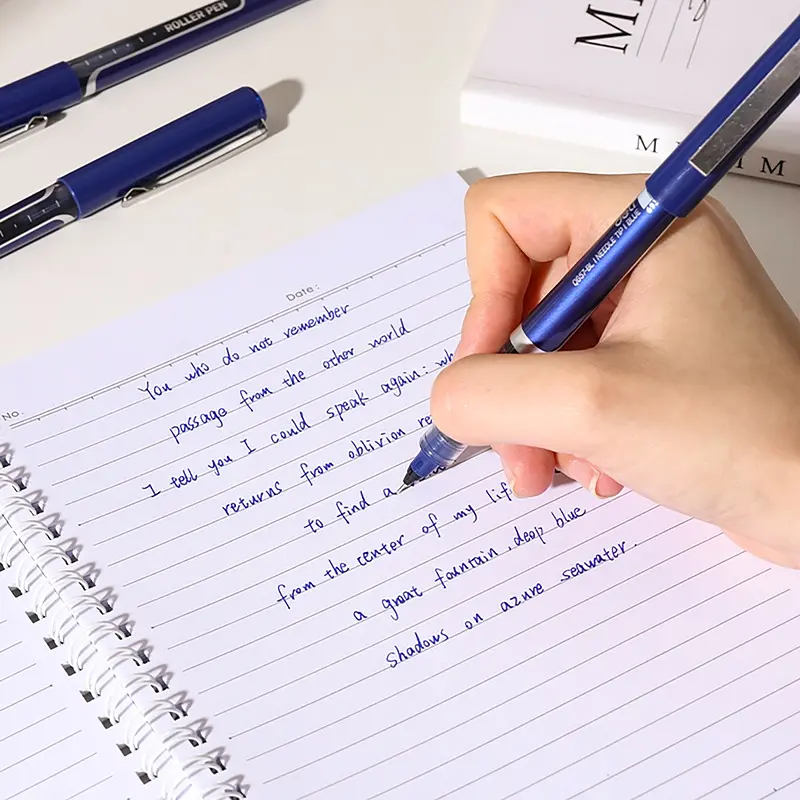 ROLLER PEN
M
M M
Q657-BL | NEEDLE TIP | BLUE
Date:
No:
You who do not remember
passage from the other world
I tell you I could speak again: wh
returns from oblivion re
to find a
from the center of my lif
a great fountain, deep blue
shadows on azure seawater.